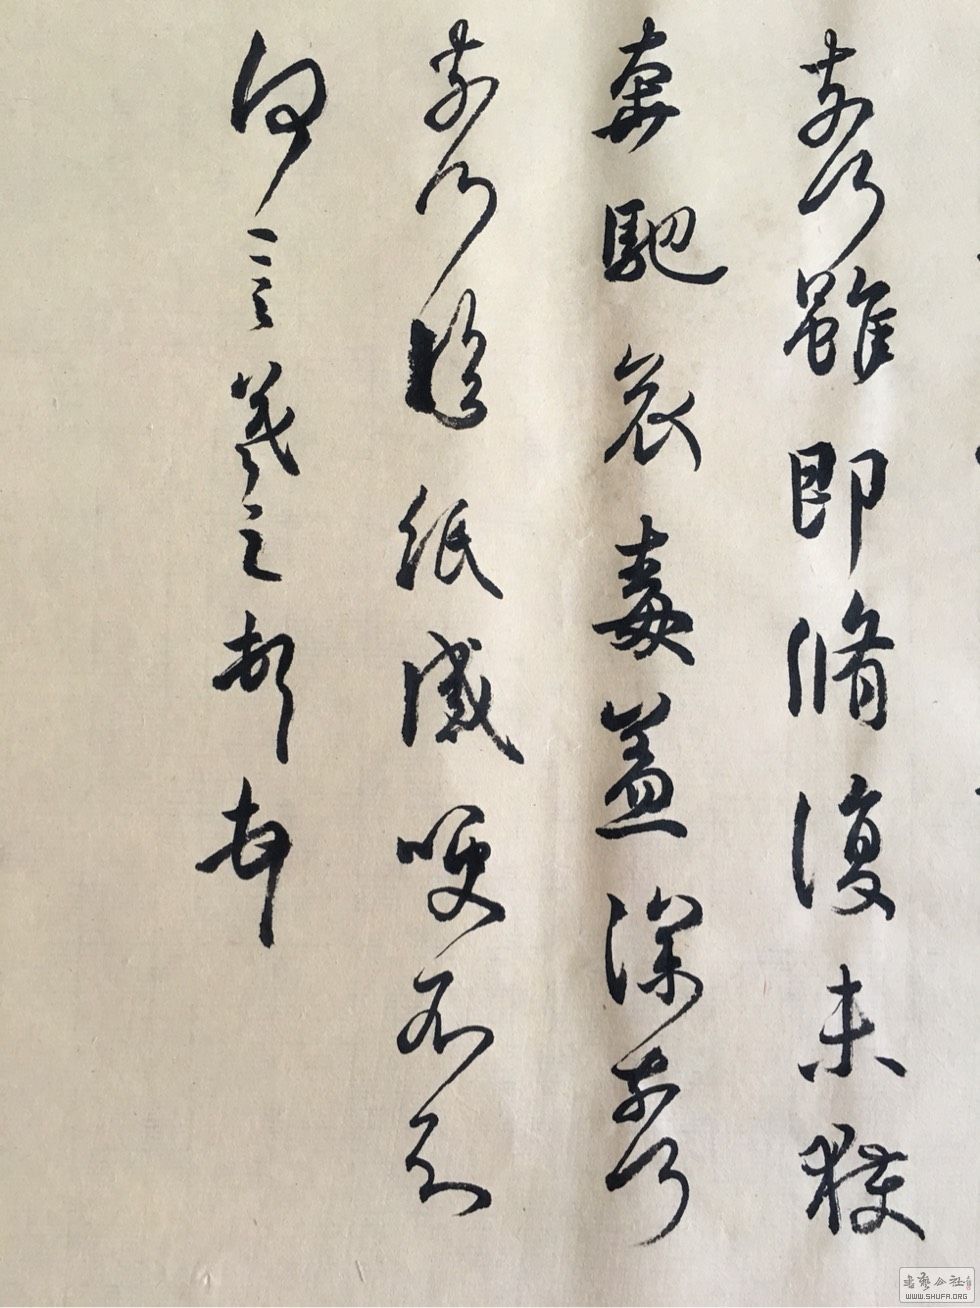 奈何雖即脩復未獲
奔馳哀毒益深奈何
奈何臨紙感哽不知
何言羲之頓首
書藝公社
WWW.SHUFA.ORG